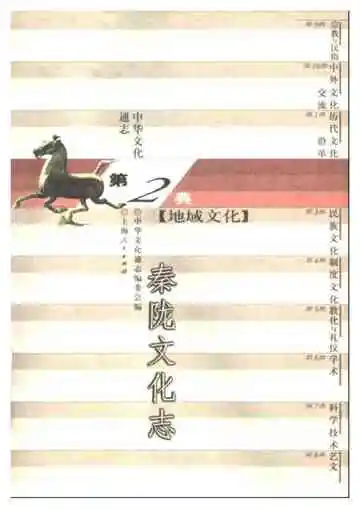 宗教与民俗
中外文化交流
历代文化沿革
中华文化通志
第2典
【地域文化】
◎中华文化通志编委会编
◎上海人民出版社
民族文化
制度文化
教化与礼仪
学术
科学技术
艺文
秦陇文化志